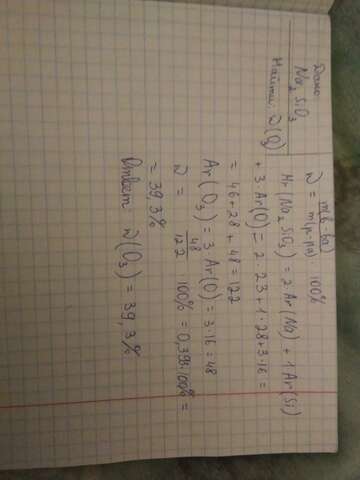 Дано
Na₂SiO₃
Найти: ω(O₃)
ω = m(в-ва) / m(р-ра) 100%
Mr(Na₂SiO₃) = 2 Ar(Na) + 1 Ar(Si)
+ 3·Ar(O) = 2·23 + 1·28 + 3·16 =
= 46 + 28 + 48 = 122
Ar(O₃) = 3 Ar(O) = 3·16 = 48
ω = 48 / 122 100% = 0,393·100% =
= 39,3%
Ответ: ω(O₃) = 39,3%